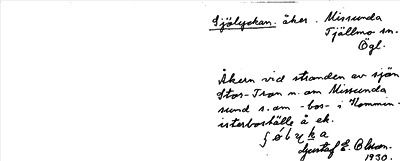 Sjölyckan. åker. Missunda
Tjällmo sn.
Ögl.
Åkern vid stranden av sjön
Stos-Tron n. om Missunda
sund s. om -bos- i Kommin-
isterboställe å ek.
Gustaf E. Olsson.
1930.